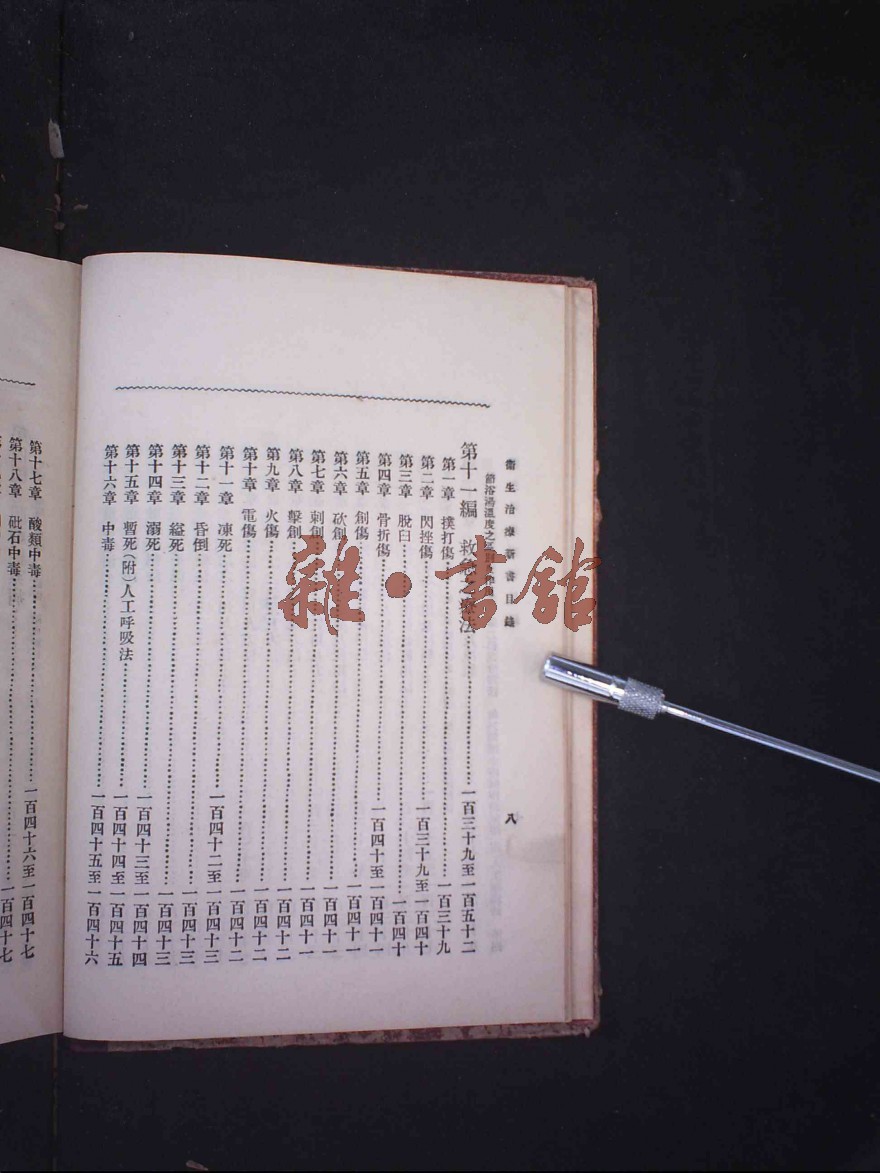 衞生治療新書目錄 八
節浴湯溫度之
第十一編 救 法 一百三十九至一百五十二
第一章 撲打傷 一百三十九
第二章 閃挫傷 一百三十九至一百四十
第三章 脫臼 一百四十
第四章 骨折傷 一百四十至一百四十一
第五章 創傷 一百四十一
第六章 砍創 一百四十一
第七章 刺創 一百四十一
第八章 擊創 一百四十一
第九章 火傷 一百四十二
第十章 電傷 一百四十二
第十一章 凍死 一百四十二至一百四十三
第十二章 昏倒 一百四十三
第十三章 縊死 一百四十三
第十四章 溺死 一百四十三至一百四十四
第十五章 暫死(附)人工呼吸法 一百四十四至一百四十五
第十六章 中毒 一百四十五至一百四十六
第十七章 酸類中毒 一百四十六至一百四十七
第十八章 砒石中毒 一百四十七
雜·書館